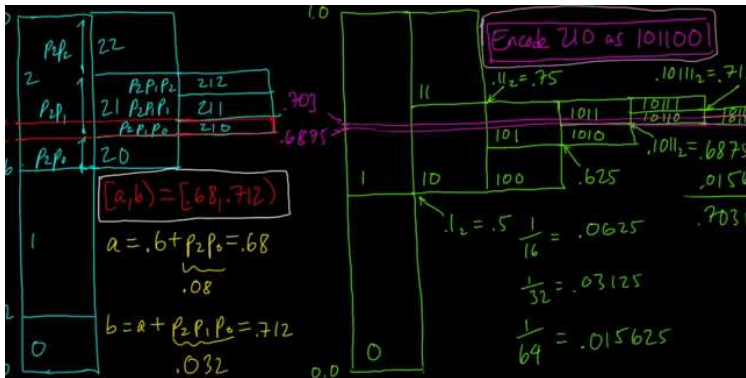 P₂P₂ 22
2
P₂P₁P₂ 212
P₂P₁ 21 P₂P₁P₁ 211
P₂P₁P₀ 210
P₂P₀ 20
[a,b)=[.68,.712)
1
a=.6+P₂P₀=.68
.08
b=a+P₂P₁P₀=.712
.032
0
1.0
Encode 210 as 101100
.11₂=.75
.10111₂=.71
11
.703
.6875
1011
10111
10110
101
1010
.1011₂=.6875
1
10
100
.625
.0156
.703
.1₂=.5
1/16 = .0625
1/32 = .03125
1/64 = .015625
0
0.0